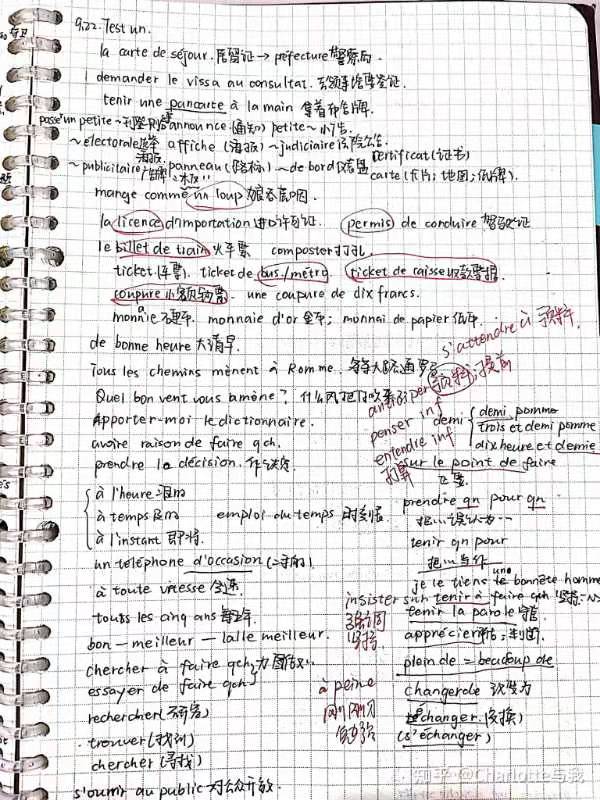 9.22. Test un.
la carte de séjour. 居留证 → préfecture 警察局.
demander le vissa au consultat. 去领事馆要签证.
tenir une pancarte à la main 拿着布告牌.
passe un petite ~ announce (通知) petite ~ 小广告.
~ électorale affiche (海报) ~ judiciaire 法院公告
~ publicitaire 海报 panneau (路标) ~ de bord
广告牌 "木板"
certificat (证书)
carte (卡片; 地图; 纸牌).
mange comme un loup 狼吞虎咽.
la licence d'importation 进口许可证. permis de conduire 驾驶证
le billet de train 火车票 composter 打孔.
ticket (车票). ticket de bus/métro ticket de caisse 收款票据.
coupure 小额钞票. une coupure de dix francs.
monnaie 硬币. monnaie d'or 金币; monnai de papier 纸币.
de bonne heure 大清早. s'attendre à
Tous les chemins mènent à Romme. 条条大路通罗马
Quel bon vent vous amène? 什么风把你吹来
Apporter-moi le dictionnaire.
avoire raison de faire qch.
prendre la décision. 作决定
anticiper 提前
penser inf
entendre inf
打算
demi
demi pomme
trois et demi pomme
dix heure et demie
sur le point de faire
正要
à l'heure 准时
à temps 及时
à l'instant 即将.
emploi du temps 时刻表
prendre qn pour qn
把...误认为...
tenir qn pour
把...当作
un téléphone d'occasion (二手的).
je le tiens une bonnête homme
à toute vitesse 全速
insister sur tenir à faire qch 坚持
强调
坚持
touts les cinq ans 每五年
tenir la parole 守信
bon — meilleur — la/le meilleur.
apprécier 评估; 判断.
chercher à faire qch. 力图做...
essayer de faire qch
plein de = beaucoup de
à peine
刚刚
勉强
changer de 改变为
rechercher (研究)
échanger (交换)
(s'échanger)
trouver (找到)
chercher (寻找)
s'ourrir au public 对公众开放.
知乎 @Charlotte与我